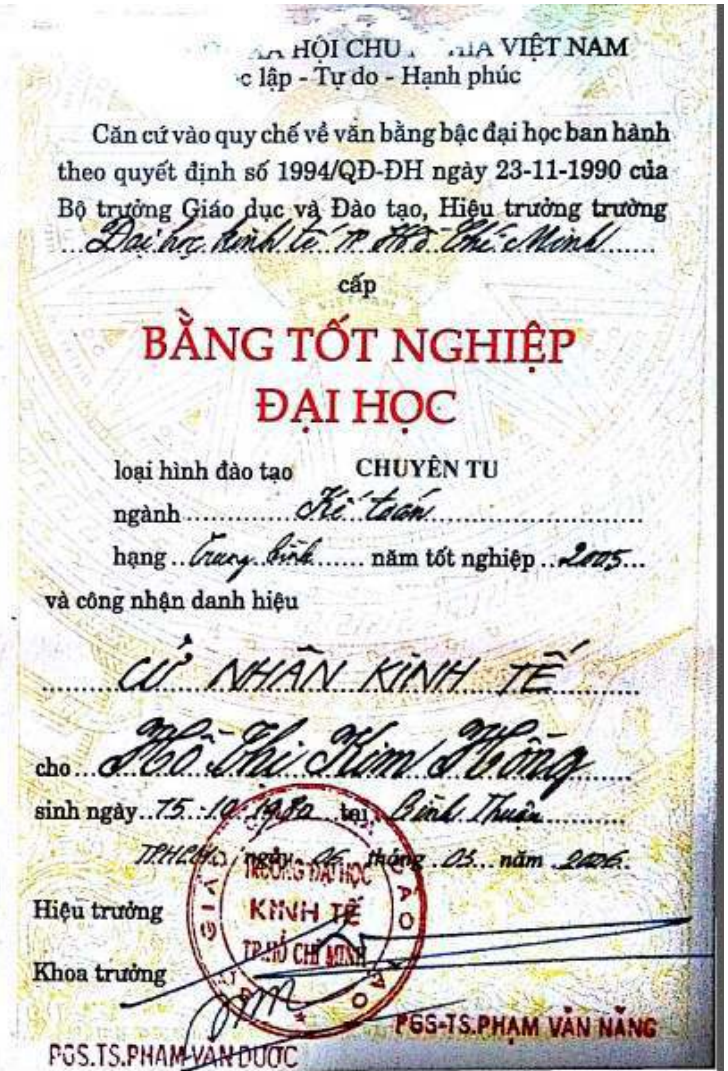 XÃ HỘI CHỦ NGHĨA VIỆT NAM
lập - Tự do - Hạnh phúc
Căn cứ vào quy chế về văn bằng bậc đại học ban hành
theo quyết định số 1994/QĐ-ĐH ngày 23-11-1990 của
Bộ trưởng Giáo dục và Đào tạo, Hiệu trưởng trường
Đại học kinh tế TP Hồ Chí Minh
cấp
BẰNG TỐT NGHIỆP
ĐẠI HỌC
loại hình đào tạo CHUYÊN TU
ngành Kế toán
hạng Trung bình năm tốt nghiệp 2005
và công nhận danh hiệu
CỬ NHÂN KINH TẾ
cho Hồ Thị Kim Hồng
sinh ngày 15-10-1980 tại Bình Thuận
TPHCM, ngày 06 tháng 03 năm 2006
TRƯỜNG ĐẠI HỌC
Hiệu trưởng
KINH TẾ
TP.HỒ CHÍ MINH
Khoa trưởng
PGS-TS.PHẠM VĂN NĂNG
PGS.TS.PHẠM VĂN DƯỢC